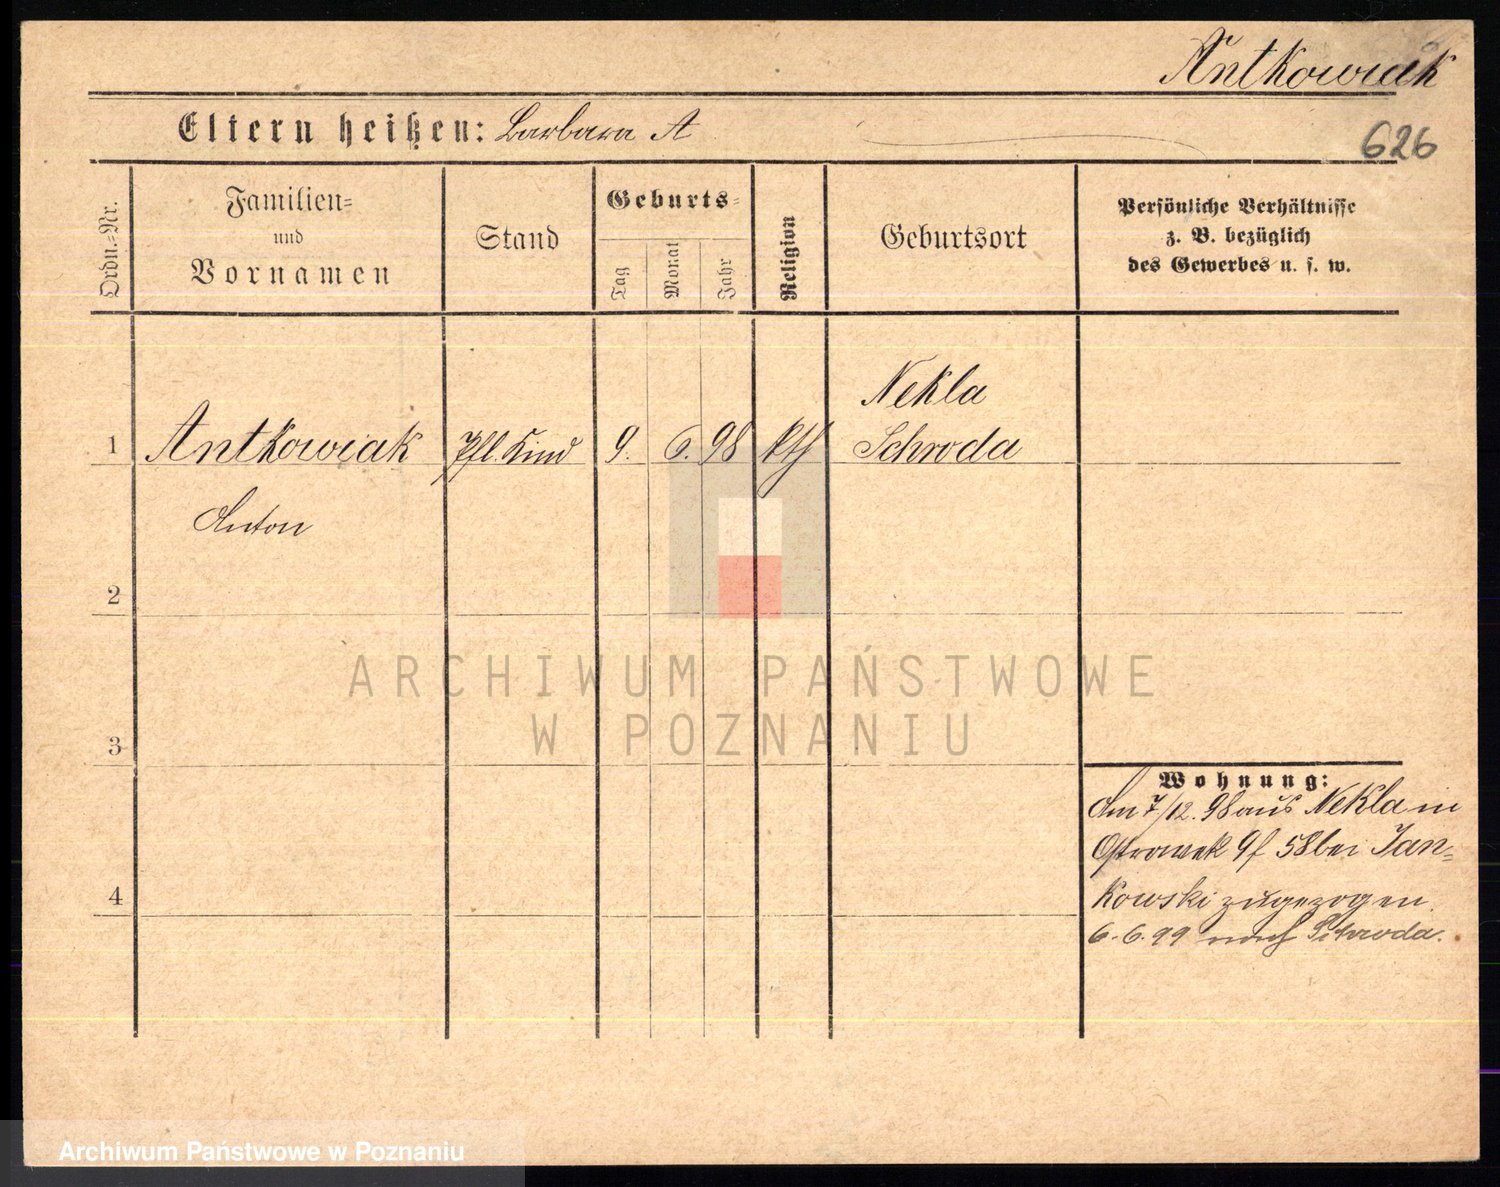 Antkowiak
Eltern heißen: Barbara A
626
Ordn.=Nr.
Familien=
und
Vornamen
Stand
Geburts=
Tag
Monat
Jahr
Religion
Geburtsort
Persönliche Verhältnisse
z. B. bezüglich
des Gewerbes u. s. w.
Nekla
1 Antkowiak Pfl. Kind 9. 6. 98 kth Schroda
Anton
2
ARCHIWUM PAŃSTWOWE
W POZNANIU
3
Wohnung:
Am 7/12. 98 aus Nekla in
Ostrowek 9f 58 bei Jan=
4
kowski zugezogen
6. 6. 99 nach Schroda.
Archiwum Państwowe w Poznaniu